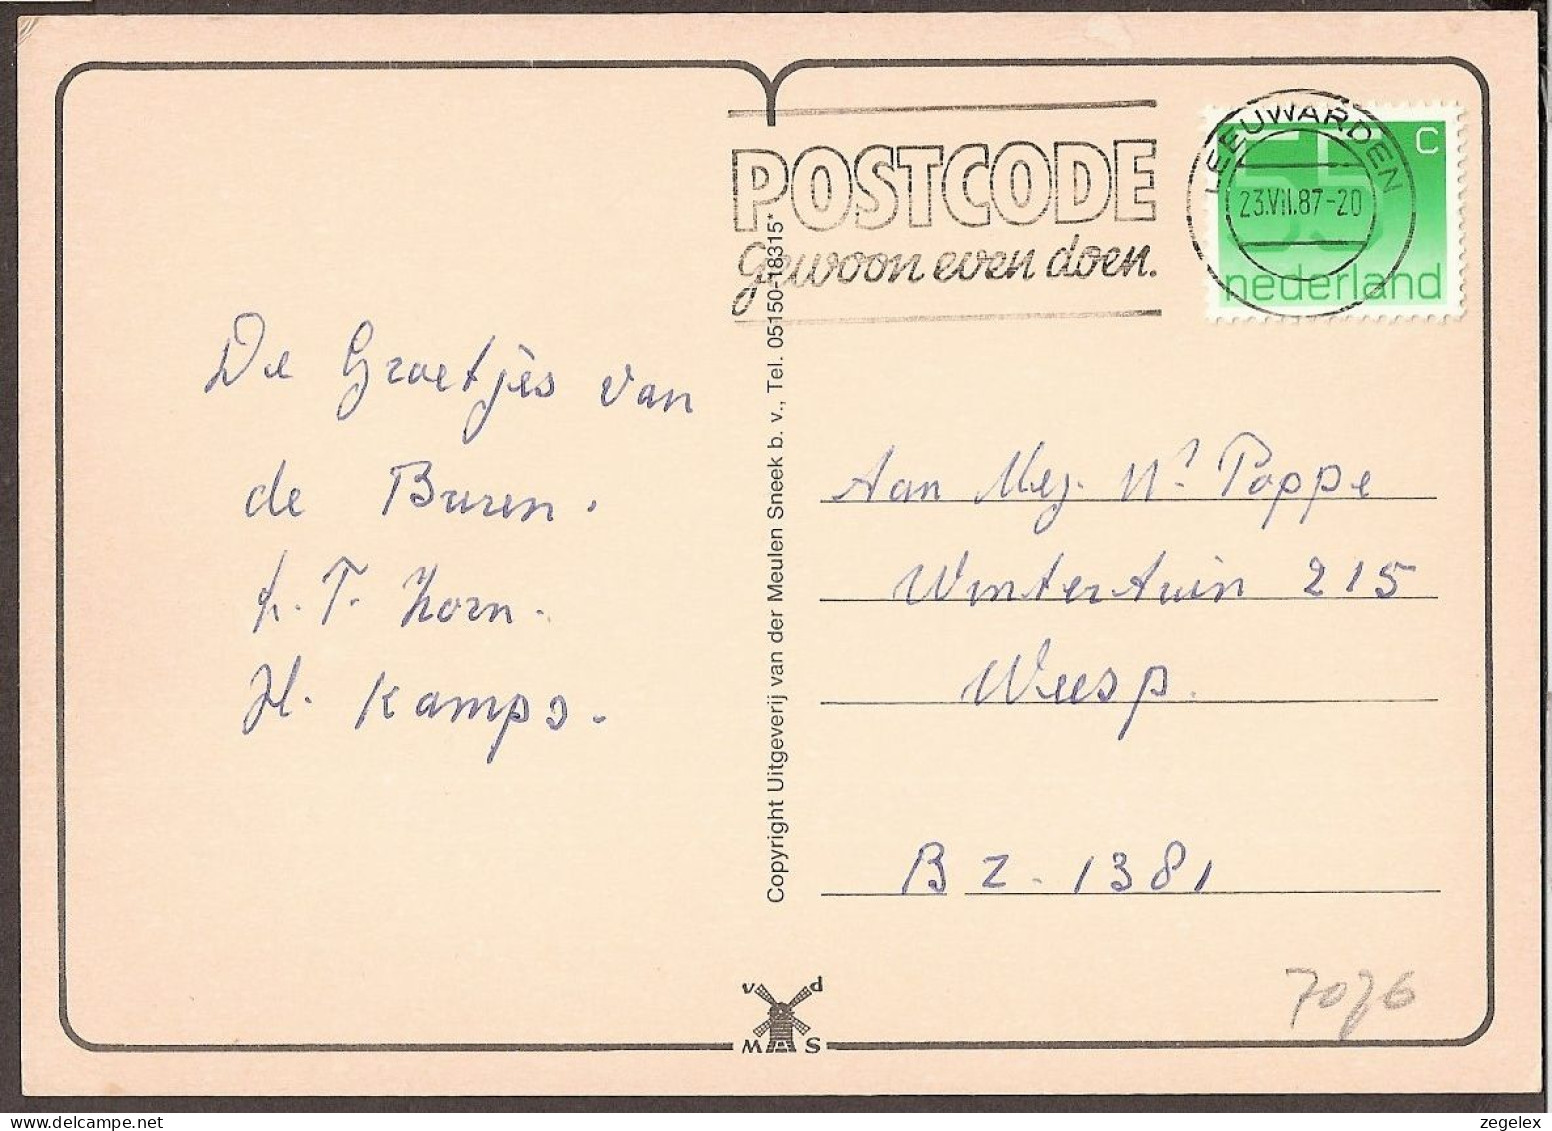 POSTCODE
gewoon even doen.
LEEUWARDEN
23.VII.87-20
55 C
nederland
De Groetjes van
de Buren.
T. Horn.
H. Kamps.
Aan Mej. W. Poppe
Wintertuin 215
Weesp.
BZ. 1381
Copyright Uitgeverij van der Meulen Sneek b. v., Tel. 05150-18315*
v d
M S
zegelex